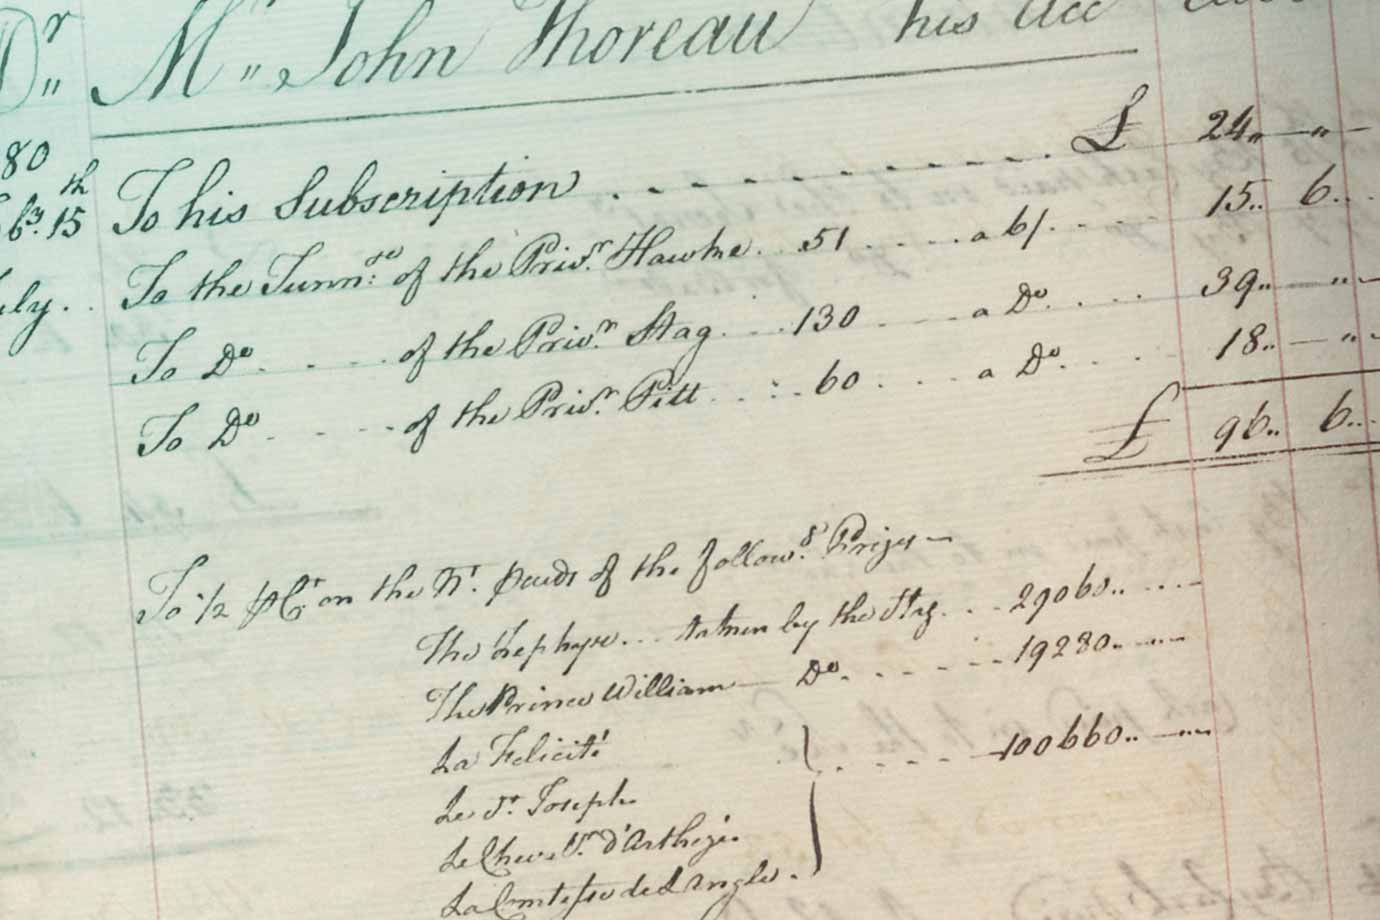 Dr Mr John Thoreau his Acc
80
To his Subscription £ 24 " "
15th
To the Tunnge of the Privr Hawke 51 a 6/ 15 6
To Do of the Privr Stag 130 a Do 39 "
To Do of the Privr Pitt 60 a Do 18 "
£ 96 6
To 1/2 p Ct on the Nt pceeds of the followg Prizes
The Zephyre taken by the Stag 29060
The Prince William Do 19280
La Felicité
100660
Le St Joseph
Le Chevr d'Arthezé
La Comtesse de Langle